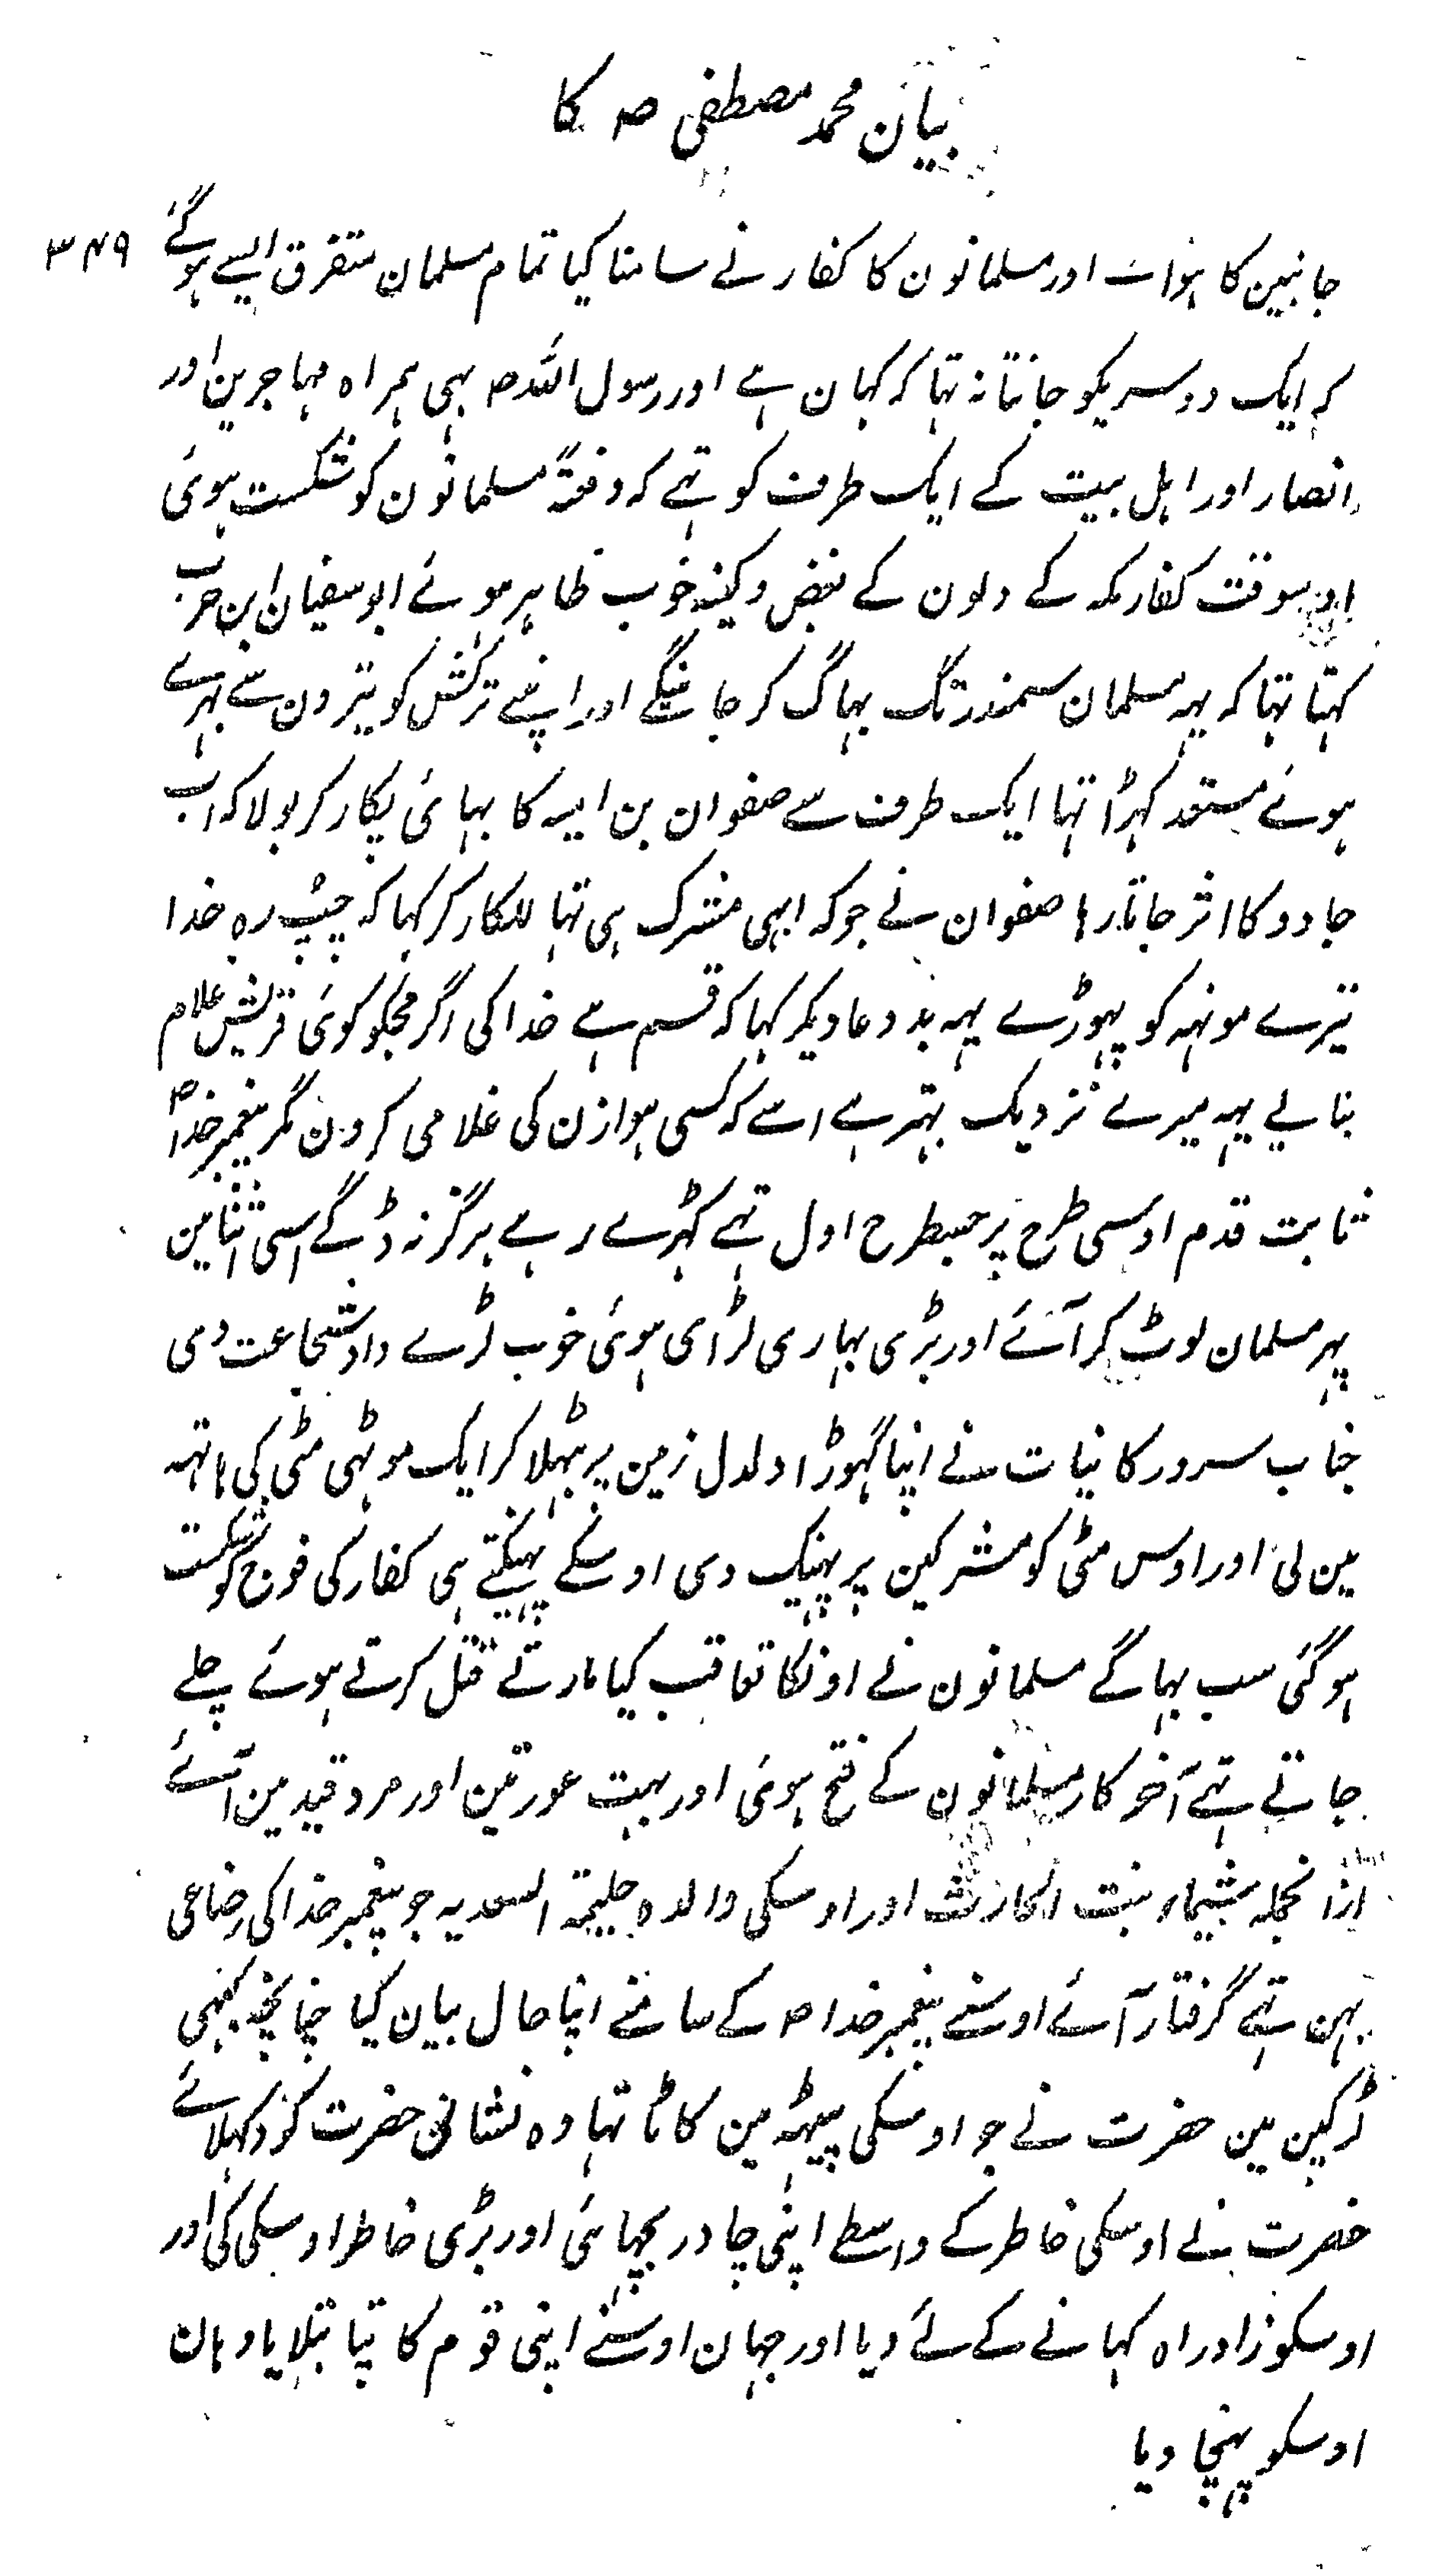 بیان محمد مصطفی ص کا
۳۴۹
جانبین کا ہوا اور مسلمانون کا کفار نے سامنا کیا تمام مسلمان متفرق ایسے ہوگئے
کہ ایک دوسریکو جانتا نہ تہا کہ کہان ہے اور رسول اللہ ص بہی ہمراہ مہاجرین اور
انصار اور اہل بیت کے ایک طرف کو تہے کہ دفعۃً مسلمانون کو شکست ہوئی
اوسوقت کفار مکہ کے دلون کے بغض و کینہ خوب ظاہر ہوئے ابو سفیان ابن حرب
کہتا تہا کہ یہہ مسلمان سمندر تک بہاگ کر جائینگے اور اپنے ترکش کو تیرون سے بہرے
ہوئے مستعد کہڑا تہا ایک طرف سے صفوان بن امیہ کا بہائی پکار کر بولا کہ اب
جادو کا اثر جاتا رہا صفوان نے جو کہ ابہی مشرک ہی تہا للکار کر کہا کہ چپ رہ خدا
تیرے مونہہ کو پہوڑے یہہ بد دعا دیکر کہا کہ قسم ہے خدا کی اگر مجکو کوئی قریش غلام
بنالے یہہ میرے نزدیک بہتر ہے اسے کہ کسی ہوازن کی غلامی کرون مگر پیغمبر خدا ص
ثابت قدم اوسی طرح پر جسطرح اول تہے کہڑے رہے ہرگز نہ ڈگے اسی اثنا مین
پہر مسلمان لوٹ کر آئے اور بڑی بہاری لڑائی ہوئی خوب لڑے داد شجاعت دی
جناب سرور کاینات نے اپنا گہوڑا دلدل زمین پر بٹہلا کر ایک موٹہی مٹی کی ہاتہہ
مین لی اور اوس مٹی کو مشرکین پر پہینک دی اوسکے پہینکتے ہی کفار کی فوج کو شکست
ہوگئی سب بہاگے مسلمانون نے اونکا تعاقب کیا مارتے قتل کرتے ہوئے چلے
جاتے تہے آخر کار مسلمانون کے فتح ہوئی اور بہت عورتین اور مرد قید مین آئے
ازانجملہ شیماء بنت الحارث اور اوسکی والدہ حلیمۃ السعدیہ جو پیغمبر خدا کی رضاعی
بہن تہے گرفتار آئے اوسنے پیغمبر خدا ص کے سامنے اپنا حال بیان کیا چنانچہ کبہی
لڑکپن مین حضرت نے جو اوسکی پیٹہہ مین کاٹا تہا وہ نشانی حضرت کو دکہلائے
حضرت نے اوسکی خاطر کے واسطے اپنی چادر بچہائی اور بڑی خاطر اوسکی کی اور
اوسکو زاد راہ کہانے کے لئے دیا اور جہان اوسنے اپنی قوم کا پتا بتلایا وہان
اوسکو پہنچا دیا